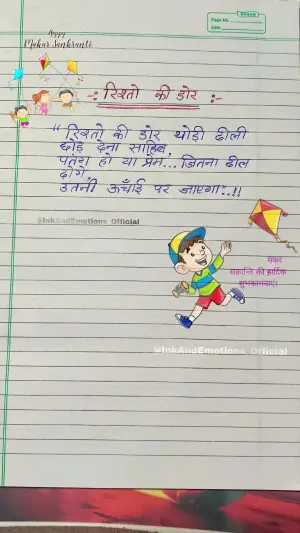 Happy
Makar Sankranti
Page No.
Date
-: रिश्तो की डोर :-
“रिश्तो की डोर थोडी ढीली
छोड़ देना साहिब,
पतंग हो या प्रेम... जितना ढील
दोगे,
उतनी ऊँचाई पर जाएगा”..!!
@InkAndEmotions_Official
मकर
संक्रान्ति की हार्दिक
शुभकामनाएं।
@InkAndEmotions_Official